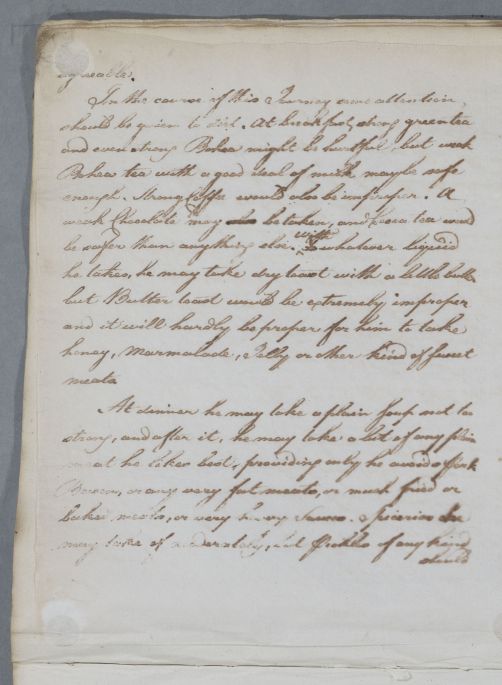 agreeable.
In the course of this Journey some attention
should be given to diet. At breakfast, strong green tea
and even strong Bohea might be hurtful, but weak
Bohea tea with a good deal of milk maybe safe
enough. Strong Coffee would also be improper. A
weak Chocolate may be taken, and Cocoa tea would
be safer than anything else. with whatever liquid
he takes, he may take dry toast with a little butter
but Butter toast would be extremely improper
and it will hardly be proper for him to take
honey, Marmalade, Jelly or other kind of sweet
meats
At dinner he may take a plain Soup not too
strong, and after it, he may take a bit of any plain
meat he likes best, providing only he avoid of Pork
Bacon, or any very fat meats, or much fried or
baked meats, or very Sauces. Spiceries he
may take of moderately, but Pickles of any kind
should